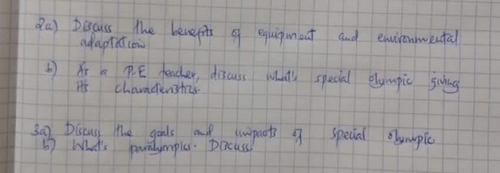 2a) Discuss the benefits of equipment and environmental
adaptation
b) As a P.E teacher, discuss what's special olympic giving
its characteristics.
3a) Discuss the goals and impacts of special olympic
b) What's paralympics. Discuss